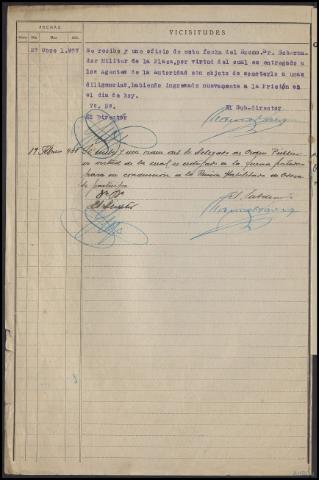 FECHAS
VICISITUDES
Día
Mes
Año
27 Obre 1.937
Se recibe y une oficio de esta fecha del Excmo. Sr. Gobernador
Militar de la Plaza, por virtud del cual es entregado a
los Agentes de la Autoridad con objeto de someterlo a unas
diligencias, habiendo ingresado nuevamente a la Prisión en
el dia de hoy.
Vº. Bº.
El Sub-director
El Director
19 Febrero
Se recibe y une orden del Sr Delegado de Orden Público
en virtud de la cual es entregado a la fuerza
para su conducción a la Prisión Habilitada de
Vº Bº
El Director